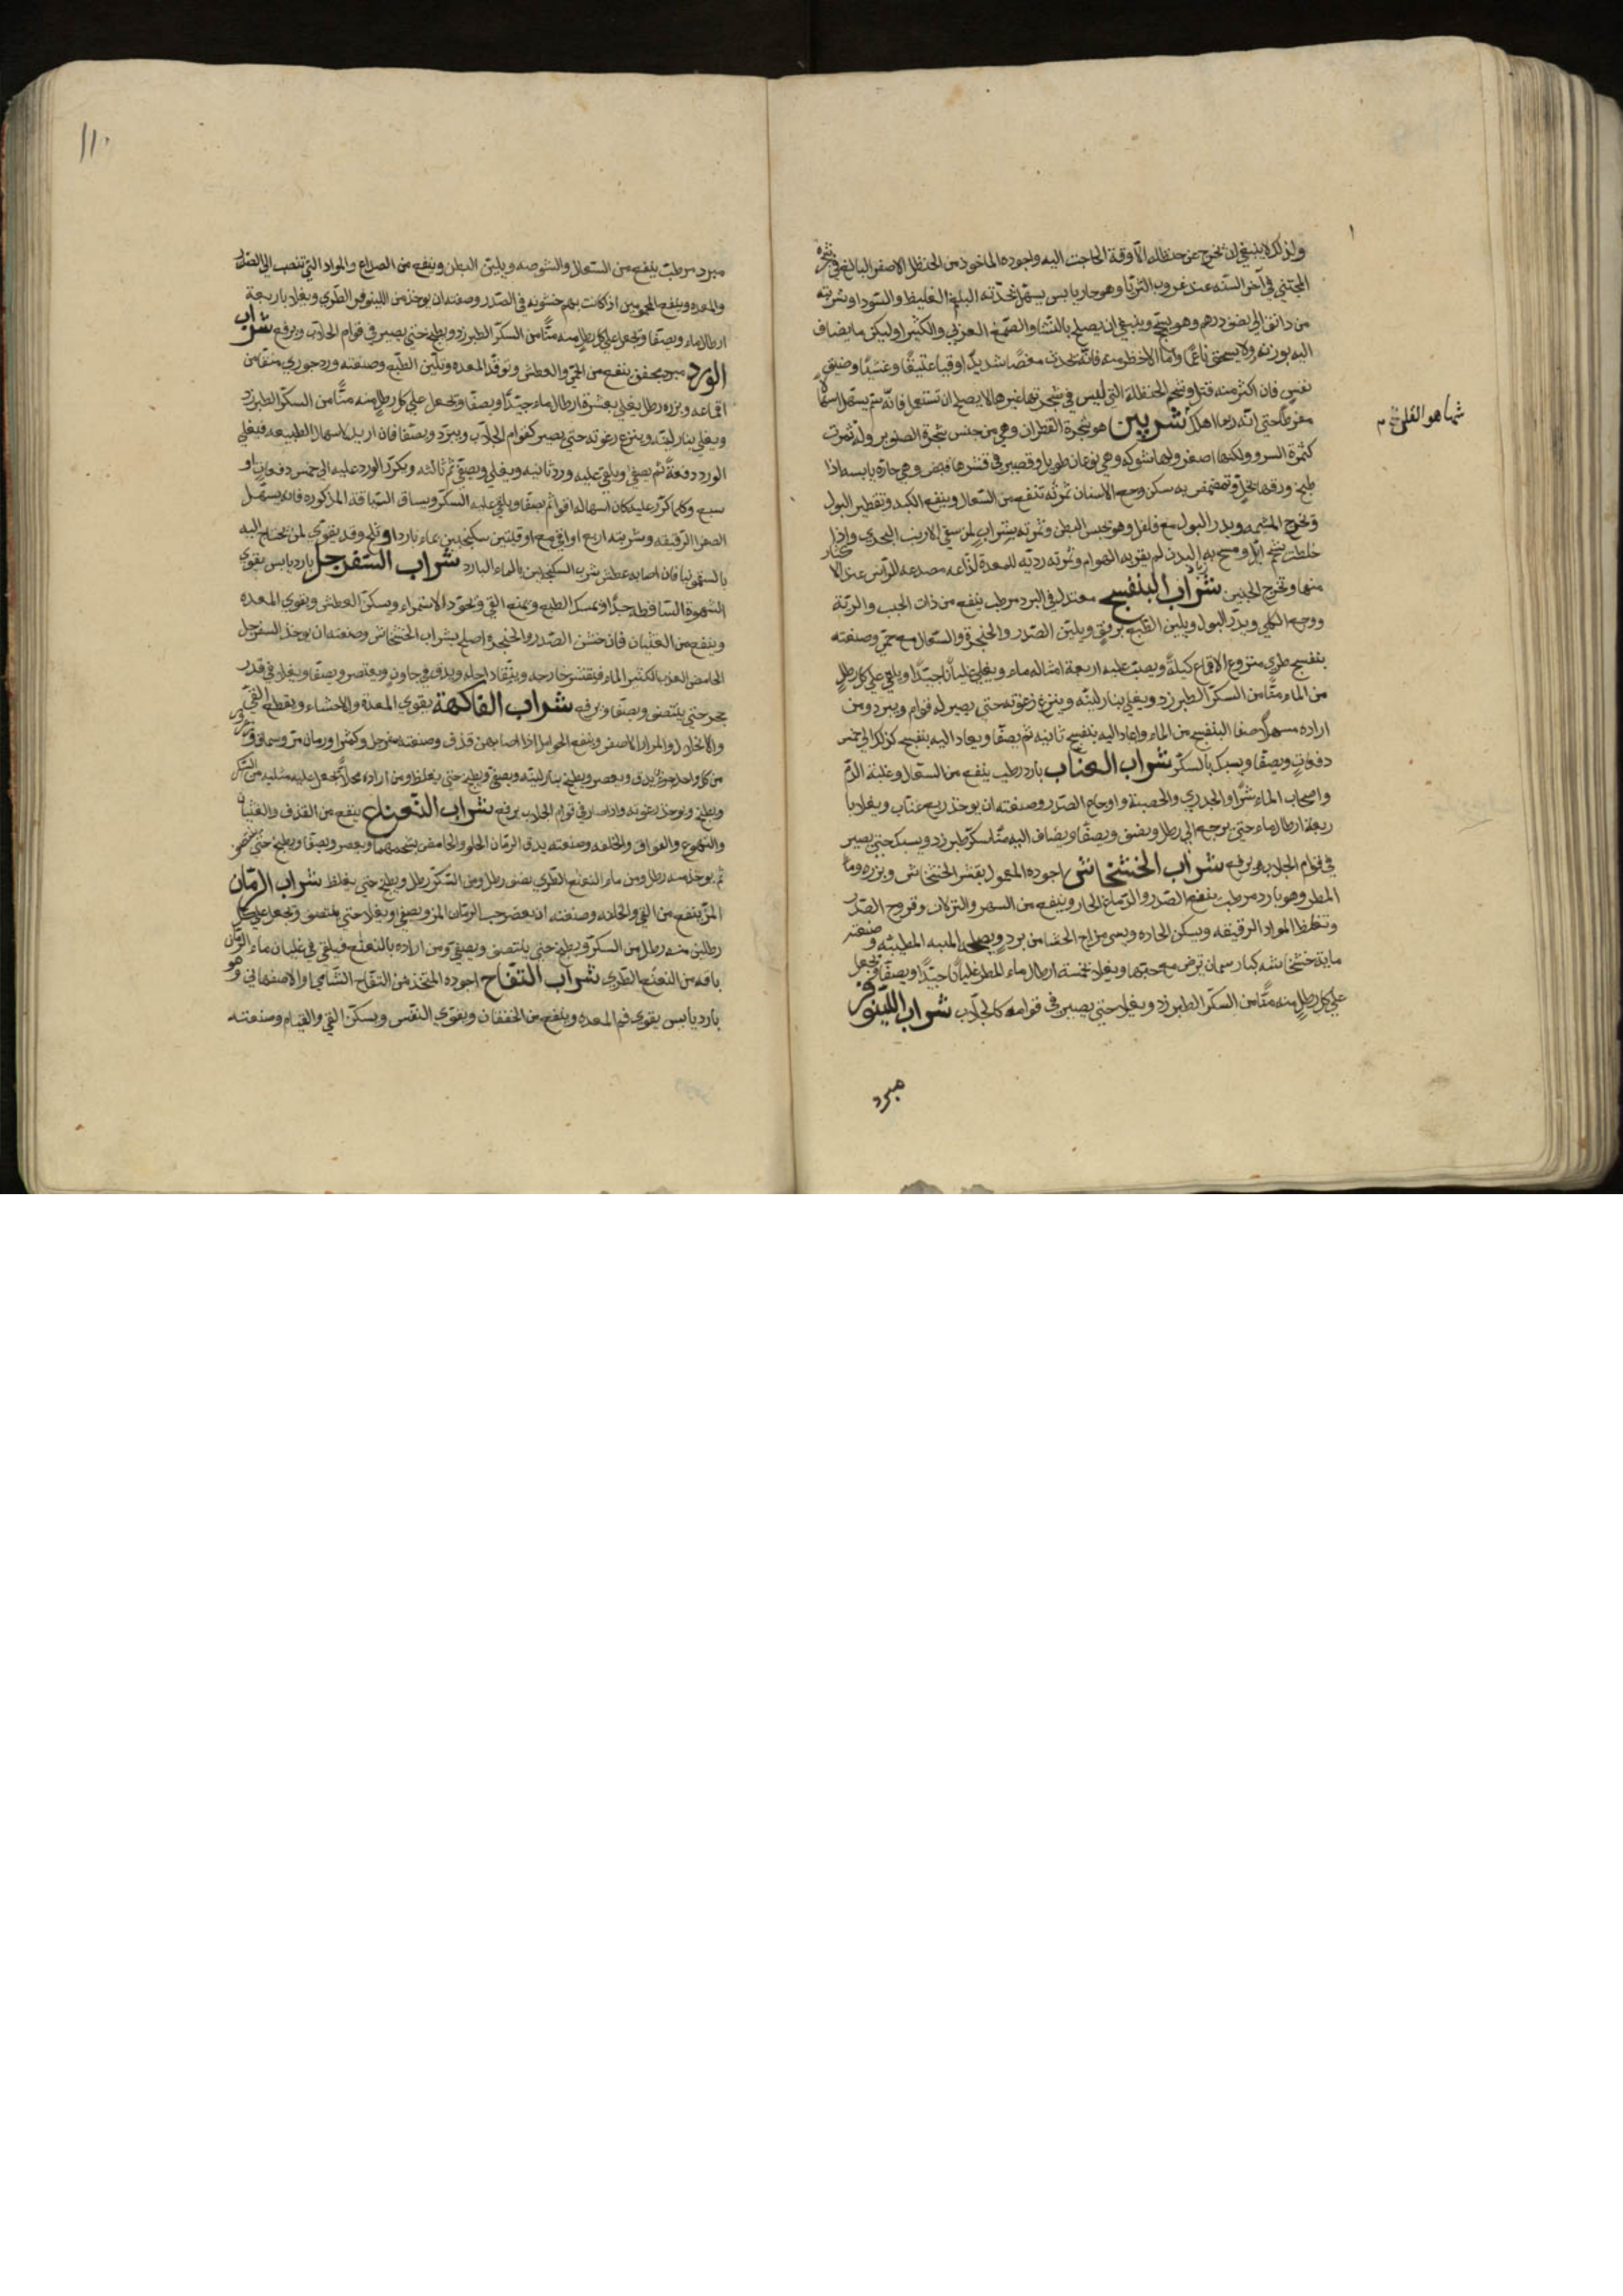 ولذلك لا ينبغي ان يخرج عن حنظله الا وقة الحاجت اليه واجوده الماخوذ من الحنظل الاصفر البالغ في شجره
المجتني في آخر السنه عند غروب الثريا وهو حار يابس يسهل شحمته البلغم الغليظ والسودا وشربته
من دانق الي نصف درهم وهو يسحج وينبغي ان يصلح بالنشا والصمغ العربي والكثيرا وليكن ما يضاف
اليه بوزنه ولا يسحق ناعما وأما الاخظر منه فانه يحدث مغصا شديدا وقيا عنيفا وغشيا وضيق
نفس فان اكثر منه قتل وشحم الحنظلة التي ليس في شجرتها غيرها لا يصلح ان تستعمل فانه سم يسهل اسهالا
مفرطا حتي انه ربما اهلك شربين هو شجرة القطران وهي من جنس شجرة الصنوبر وله ثمرت
كثمرة السرو ولكنها اصغر ولها شوكه وهي نوعان طويل وقصير في قشرها قبض وهي حارة يابسه اذا
طبخ ورقها بخل وتمضمض به سكن وجع الاسنان ثمرته تنفع من السعال وينفع الكبد وتقطير البول
وتخرج المشيمه ويدر البول مع فلفل وهو يحبس البطن وثمرته بشراب لمن سقي الارنب البحري واذا
خلطت بشحم ايل ومسح به البدن لم يقربه الهوام وثمرته رديه للمعدة لذاعه مصدعه للراس عند الاكثار
منها وتخرج الجنين شراب البنفسج معتدل في البرد مرطب ينفع من ذات الجنب والرئة
ووجع الكلي ويدر البول ويلين الطبع برفق ويلين الصدر والحنجرة والسعال مع حمي وصنعته
بنفسج طري منزوع الاقماع كيلة ويصب عليه اربعة امثاله ماء ويغلي غليانا جيدا ويلقي علي كل رطل
من الماء منا من السكر الطبرزد ويغلي بنار لينه وينزع رغوته حتي يصير له قوام ويبرد ومن
اراده مسهلا صفا البنفسج من الماء واعاد اليه بنفسج ثانيه ثم يصفا ويعاد اليه بنفسج كذلك الي خمس
دفعات ويصفا ويسبك بالسكر شراب العناب بارد رطيب ينفع من السعال وغلبة الدم
واصحاب الماء شرا والجدري والحصبة واوجاع الصدر وصنعته ان يوخذ ربع عناب ويغلا با
ربعة ارطال ماء حتي يرجع الي رطل ونصف ويصفا ويضاف اليه منا سكر طبرزد ويسبك حتي يصير
في قوام الجلاب ويرفع شراب الخشخاش اجوده المعمول بقشر الخشخاش وبزره وماء
المطر وهو بارد مرطب ينفع الصدر والدماغ الحار وينفع من السهر والنزلات وقروح الصدر
وتغلظ المواد الرقيقه ويسكن الحاده
ماية خشخاشه كبار سمان ترض مع حبتها ويغلا بخمسة ارطال ماء المطر غليانا جيدا ويصفا ويجعل
علي كل رطل منه منا من السكر الطبرزد ويغلا حتي يصير في قوامه كالجلاب شراب اللينوفر
مبرد
مبرد مرطب ينفع من السعال والشوصه ويلين البطن وينفع من الصداع والمواد التي تنصب الي الصدر
والمعده وينفع المحمومين اذ كانت بهم خشونه في الصدر وصفته ان يوخذ من اللينوفر الطري ويغلا باربعة
ارطال ماء ويصفا ويجعل علي كل رطل منه منا من السكر الطبرزد ويطبخ حتي يصير في قوام الجلاب ويرفع شراب
الورد مبرد مجفف ينفع من الحمي والعطش وتوقد المعده وتلين الطبع وصنعته ورد جوري منقا من
اقماعه وبزره رطل يغلي بعشرة ارطال ماء جيدا ويصفا ويجعل علي كل رطل منه منا من السكر الطبرزد
ويغلي بنار لينه وينزع رغوته حتي يصير كقوام الجلاب ويبرد ويصفا فان اريد لاسهال الطبيعه فيغلي
الورد دفعة ثم يصفي ويلقي عليه ورد ثانيه ويغلي ويصفي ثم ثالثه ويكرر الورد عليه الي خمس دفعات او
سبع وكلما كرر عليه كان اسهاله اقوا ثم يصفا ويلقي عليه السكر ويساق السياقة المذكوره فانه يسهل
الصفرا الرقيقه وشربته اربع اواقي مع اوقيتين سكنجبين بماء بارد او ثلج وقد يقوي لمن يحتاج اليه
بالسقمونيا فان اصابه عطش شرب السكنجبين بالماء البارد شراب السفرجل بارد يابس يقوي
الشهوة الساقطه جدا ويمسك الطبع ويمنع القي ويجود الاستمراء ويسكن العطش ويقوي المعده
وينفع من الغثيان فان خشن الصدر والحنجرة اصلح بشراب الخشخاش وصنعته ان يوخذ السفرجل
الحامض العذب الكثير الماء فيقشر خارجه وينقا داخله ويدق في جاون ويعتصر ويصفا ويغلا في قدر
حجر حتي ينتصف ويصفا ويرفع شراب الفاكهة يقوي المعدة والاحشاء ويقطع القي
والانحلال والمرار الاصفر وينفع الحوامل اذا اصابهن قذف وصنعته سفرجل وكمثرا ورمان مز وسماق
من كل واحد جزء يدق ويعصر ويطبخ بنار لينه ويصفي ويطبخ حتي يغلظ ومن اراده محلا يجعل عليه مثليه من السكر
ويطبخ ويوخذ رغوته واذا صار في قوام الجلاب يرفع شراب النعناع ينفع من القذف والغثيان
والتهوع والفواق والخلفه وصنعته يدق الرمان الحلو والحامض بشحمهما ويعصر ويصفا ويطبخ حتي
ثم يوخذ منه رطل ومن ماء النعنع الطري نصف رطل ومن السكر رطل ويطبخ حتي يغلظ شراب الرمان
المز ينفع من القي والخلفه وصنعته ان يعصر حب الرمان المز ويصفي ويغلا حتي ينتصف ويجعل علي كل
رطلين منه رطل من السكر ويطبخ حتي ينتصف ويصفي ومن اراده بالنعنع فيلقي في غليان ماء الرمان
باقه من النعنع الطري شراب التفاح اجوده المتخذ من التفاح الشامي والاصفهاني وهو
بارد يابس يقوي فم المعده وينفع من الخفقان ويقوي النفس ويسكن القي والقيام وصنعته